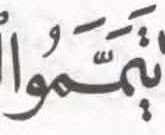 تَيَمَّمُوا